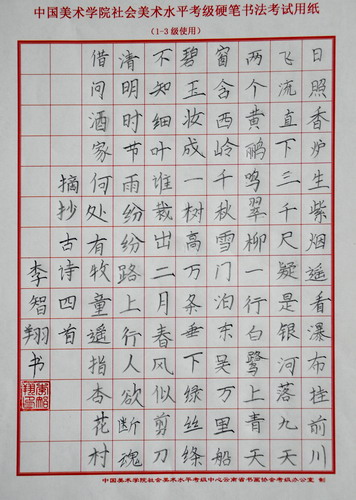 中国美术学院社会美术水平考级硬笔书法考试用纸
（1-3级使用）
日照香炉生紫烟遥看瀑布挂前川
飞流直下三千尺疑是银河落九天
两个黄鹂鸣翠柳一行白鹭上青天
窗含西岭千秋雪门泊东吴万里船
碧玉妆成一树高万条垂下绿丝绦
不知细叶谁裁出二月春风似剪刀
清明时节雨纷纷路上行人欲断魂
借问酒家何处有牧童遥指杏花村
摘抄古诗四首
李智翔书
中国美术学院社会美术水平考级中心云南省书画协会考级办公室 制